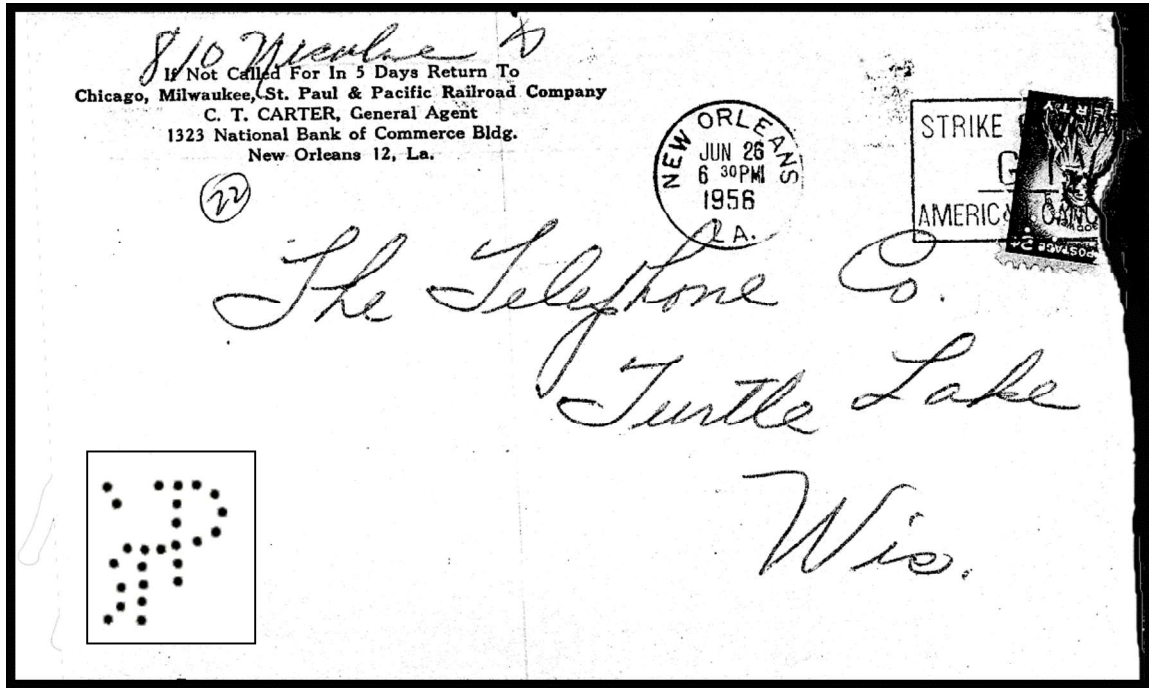 810
If Not Called For In 5 Days Return To
Chicago, Milwaukee, St. Paul & Pacific Railroad Company
C. T. CARTER, General Agent
1323 National Bank of Commerce Bldg.
New Orleans 12, La.
22
NEW ORLEANS
JUN 26
6 30 PM
1956
LA.
STRIKE
AMERICA
LIBERTY
POSTAGE
The Telephone Co.
Turtle Lake
Wis.